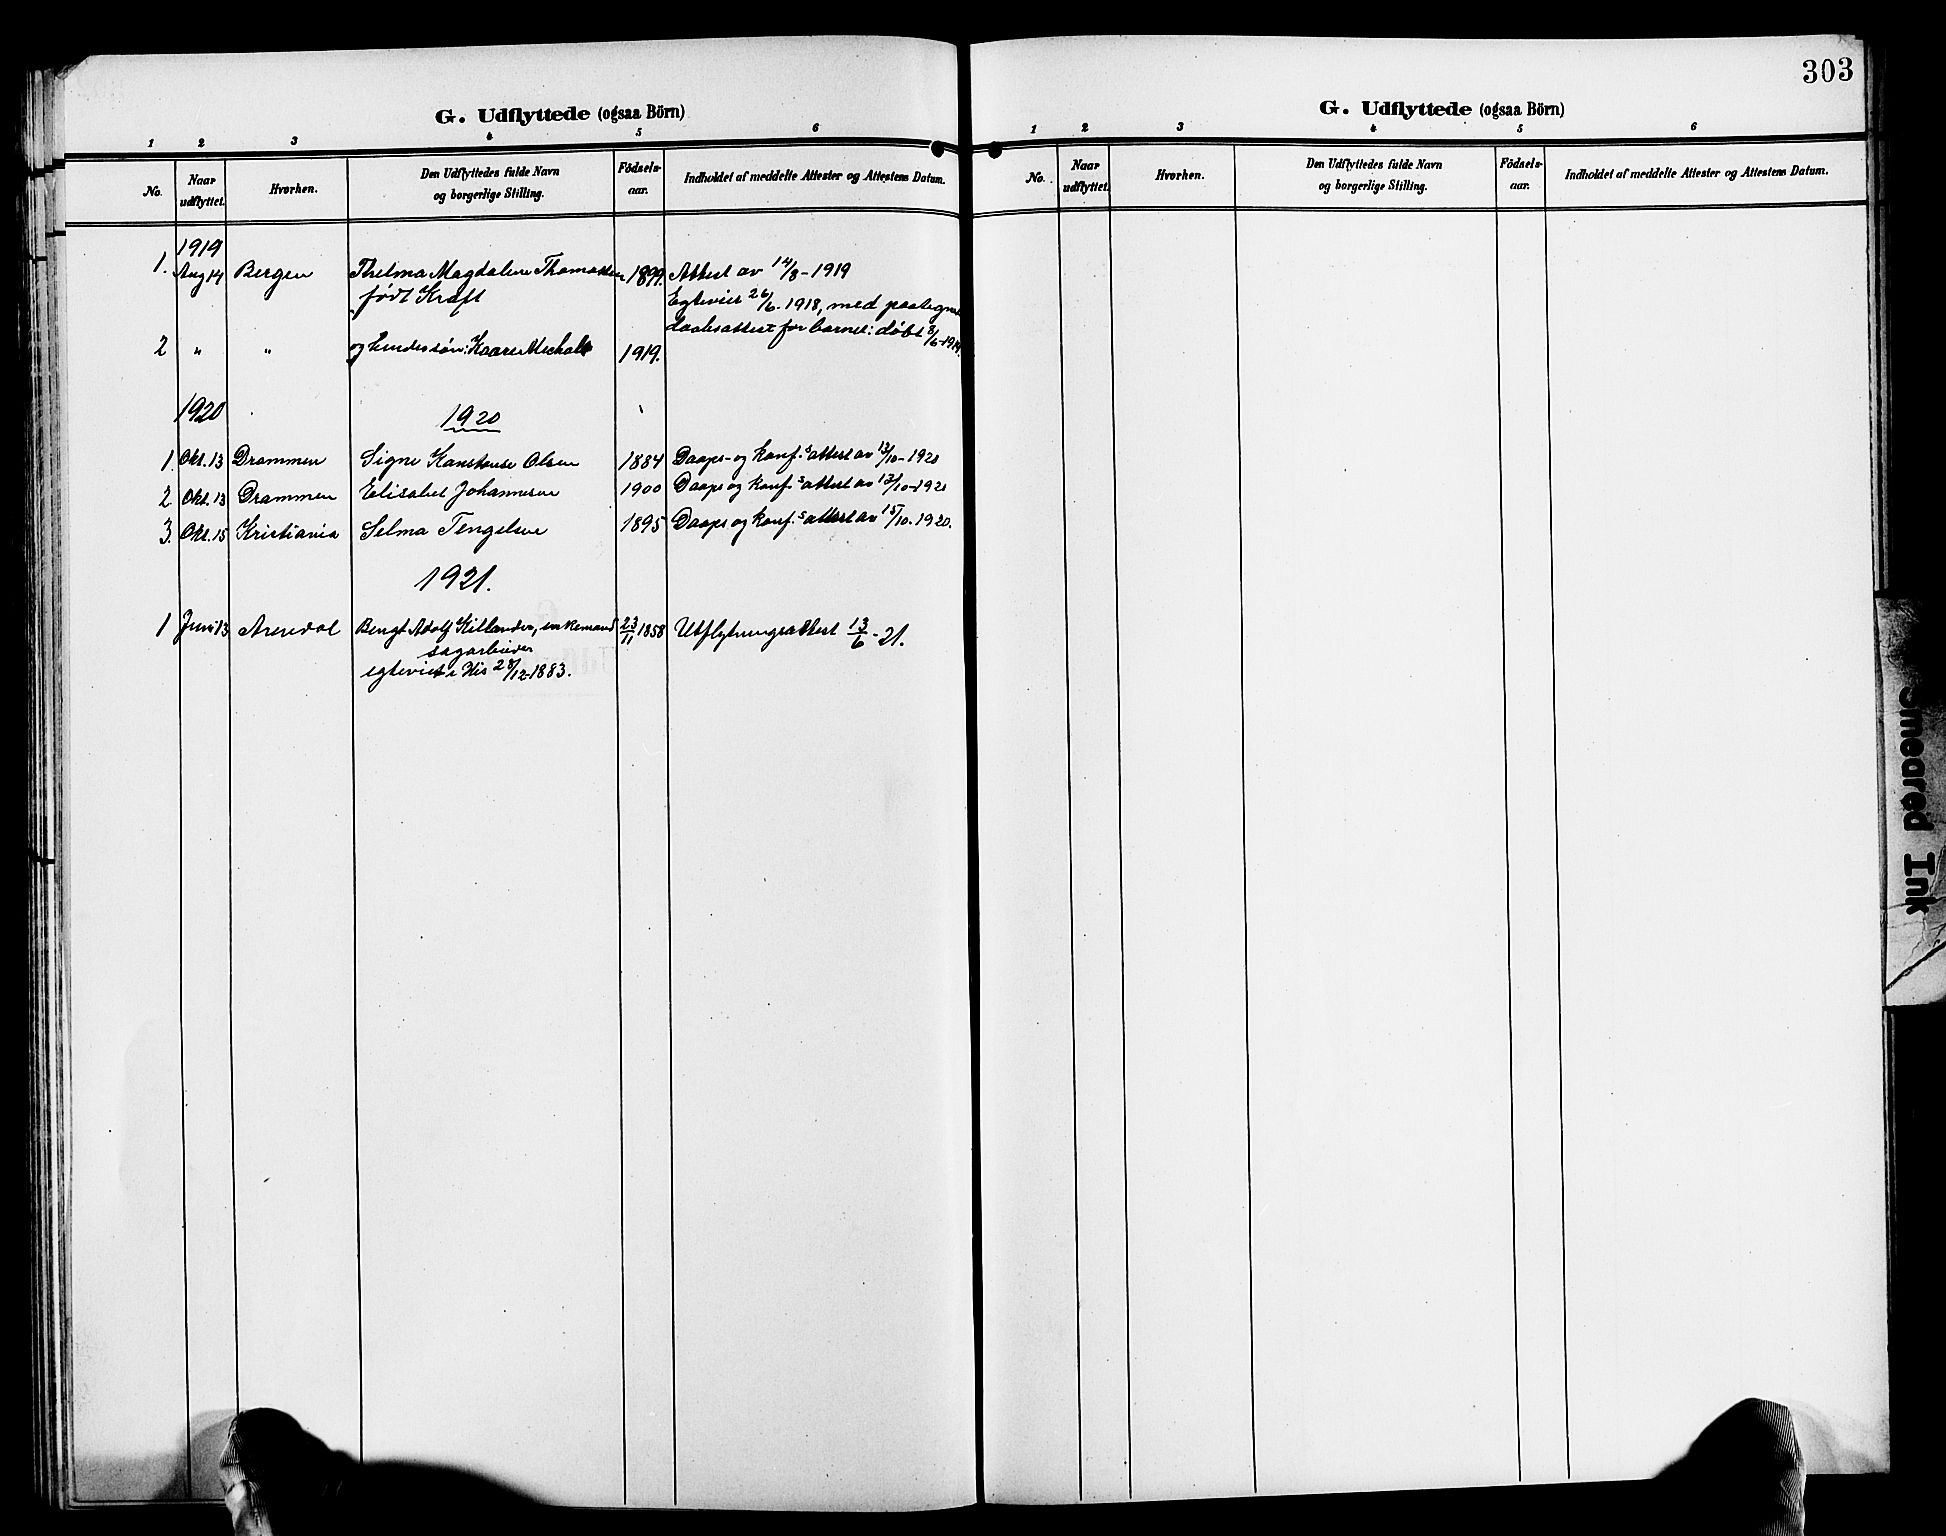 303
G. Udflyttede (ogsaa Börn)
1 2 3 4 5 6
No. Naar udflyttet. Hvorhen. Den Udflyttedes fulde Navn og borgerlige Stilling. Födsels-aar. Indholdet af meddelte Attester og Attestens Datum.
1919
1. Aug 14 Bergen Thelma Magdalene Thomassen 1899. Attest av 14/8-1919
født Kraft Egteviet 26/6. 1918, med paategnet
daabsattest for barnet: døbt 8/6-1919.
2 " " og hendes søn: Kaare 1919.
1920 1920
1. Okt. 13 Drammen Signe Konstanse Olsen 1884 Daaps- og konf.s attest av 13/10-1920
2 Okt. 13 Drammen Elisabet Johannesen 1900 Daaps og konf.s attest av 13/10-1920
3. Okt. 15 Kristiania Selma Tengelsen 1895 Daaps og konf.s attest av 15/10. 1920.
1921.
1 Juni 13 Arendal Bengt Adolf Killander, enkemand 23/11 1858 Utflytningsattest 13/6-21.
sagarbeider
egteviet i His 28/12-1883.
G. Udflyttede (ogsaa Börn)
1 2 3 4 5 6
No. Naar udflyttet. Hvorhen. Den Udflyttedes fulde Navn og borgerlige Stilling. Födsels-aar. Indholdet af meddelte Attester og Attestens Datum.
Smeared Ink